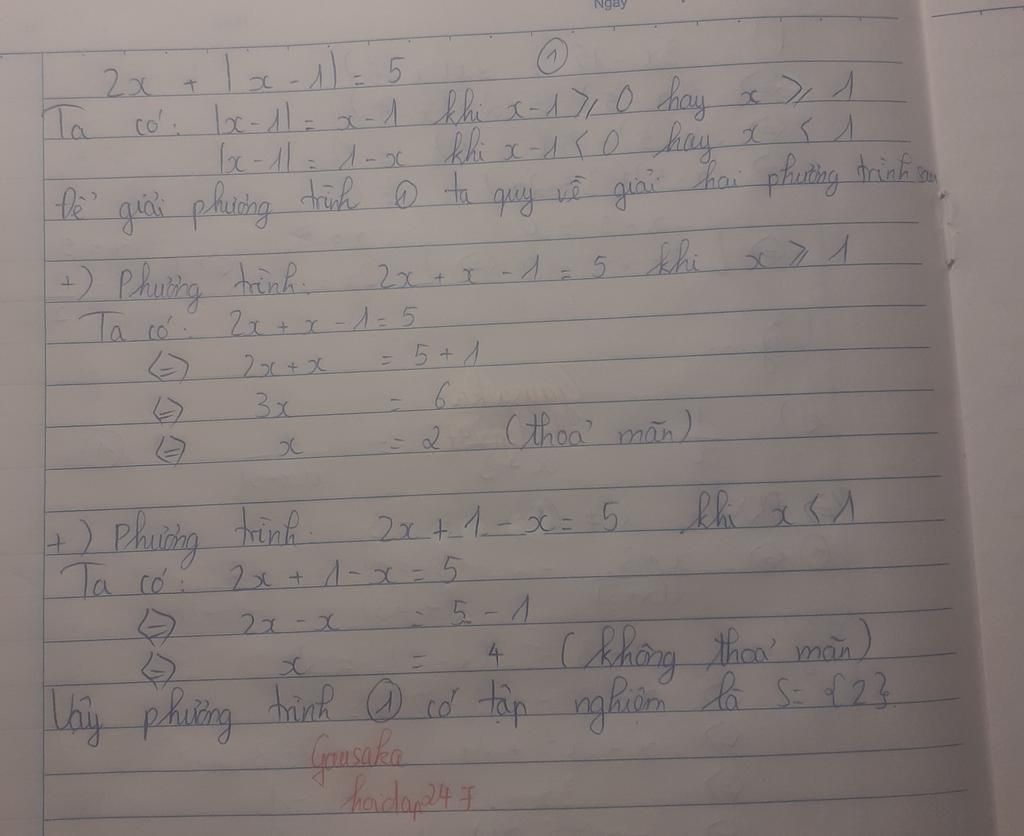 Ngày
2x + |x - 1| = 5 ①
Ta có: |x - 1| = x - 1 khi x - 1 ⩾ 0 hay x ⩾ 1
|x - 1| = 1 - x khi x - 1 < 0 hay x < 1
Để giải phương trình ① ta quy về giải hai phương trình sau
+) Phương trình. 2x + x - 1 = 5 khi x ⩾ 1
Ta có: 2x + x - 1 = 5
<=> 2x + x = 5 + 1
<=> 3x = 6
<=> x = 2 (thoả mãn)
+) Phương trình. 2x + 1 - x = 5 khi x < 1
Ta có: 2x + 1 - x = 5
<=> 2x - x = 5 - 1
<=> x = 4 (không thoả mãn)
Vậy phương trình ① có tập nghiệm là S = {2}.
Gausaka
hoidap247